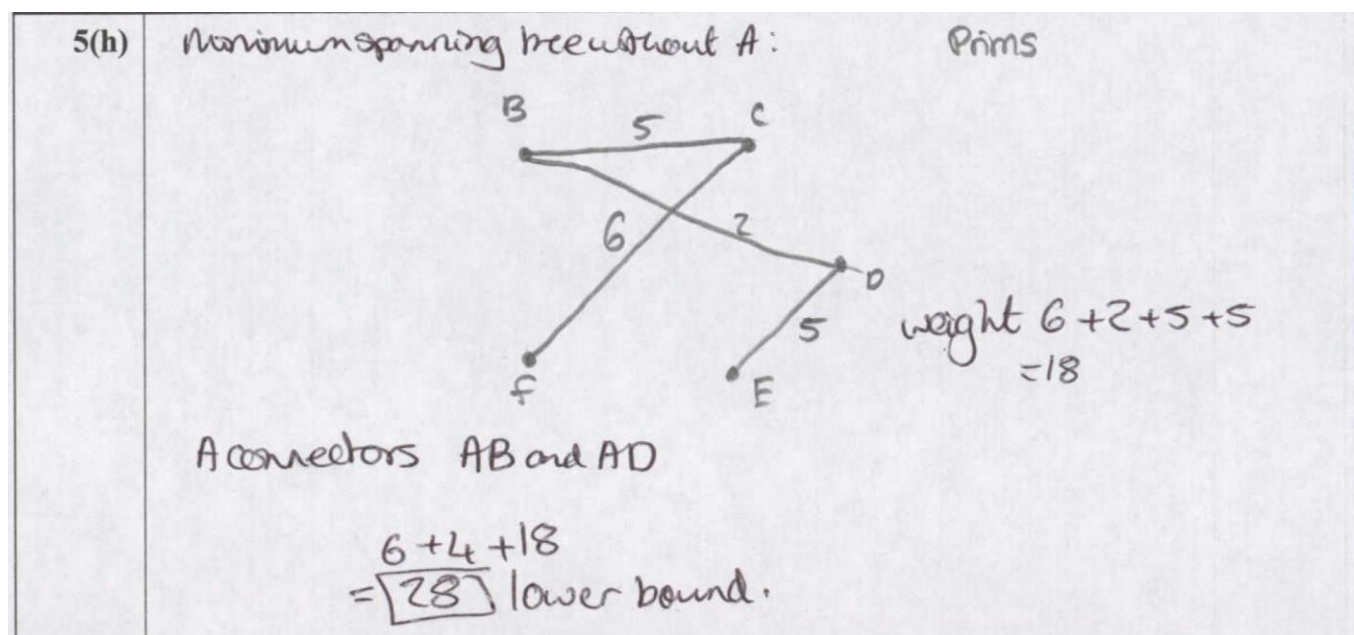 5(h) Minimum spanning tree without A: Prims
B
C
5
6
2
D
5
F
E
weight 6+2+5+5
=18
A connectors AB and AD
6+4+18
= 28 lower bound.